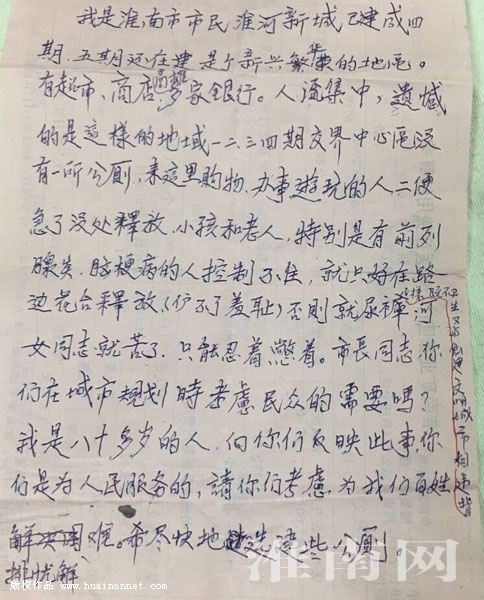 我是淮南市市民淮河新城已建成四
期.五期还在建是个新兴繁华的地區。
有超市,商店,多家银行。人流集中,遗憾
的是這樣的地域一二三四期交界中心區没
有一所公厕,来這里购物.办事遊玩的人二便
急了没处釋放.小孩和老人.特别是有前列
腺炎.脑梗病的人控制不住,就只好在路
边花台釋放,(
羞耻)否则就尿褲
女同志就苦了.只能忍着憋着。市長同志,你
们在城市規划時考慮民众的需要嗎?
我是八十多岁的人.向你们反映此事,你
们是为人民服务的,請你们考慮,为我们百姓
排忧解难。希尽快地
建些公厕。
生又与创建文明城市相违背
淮南网
版权作品 www.huainannet.com
www.huainannet.com